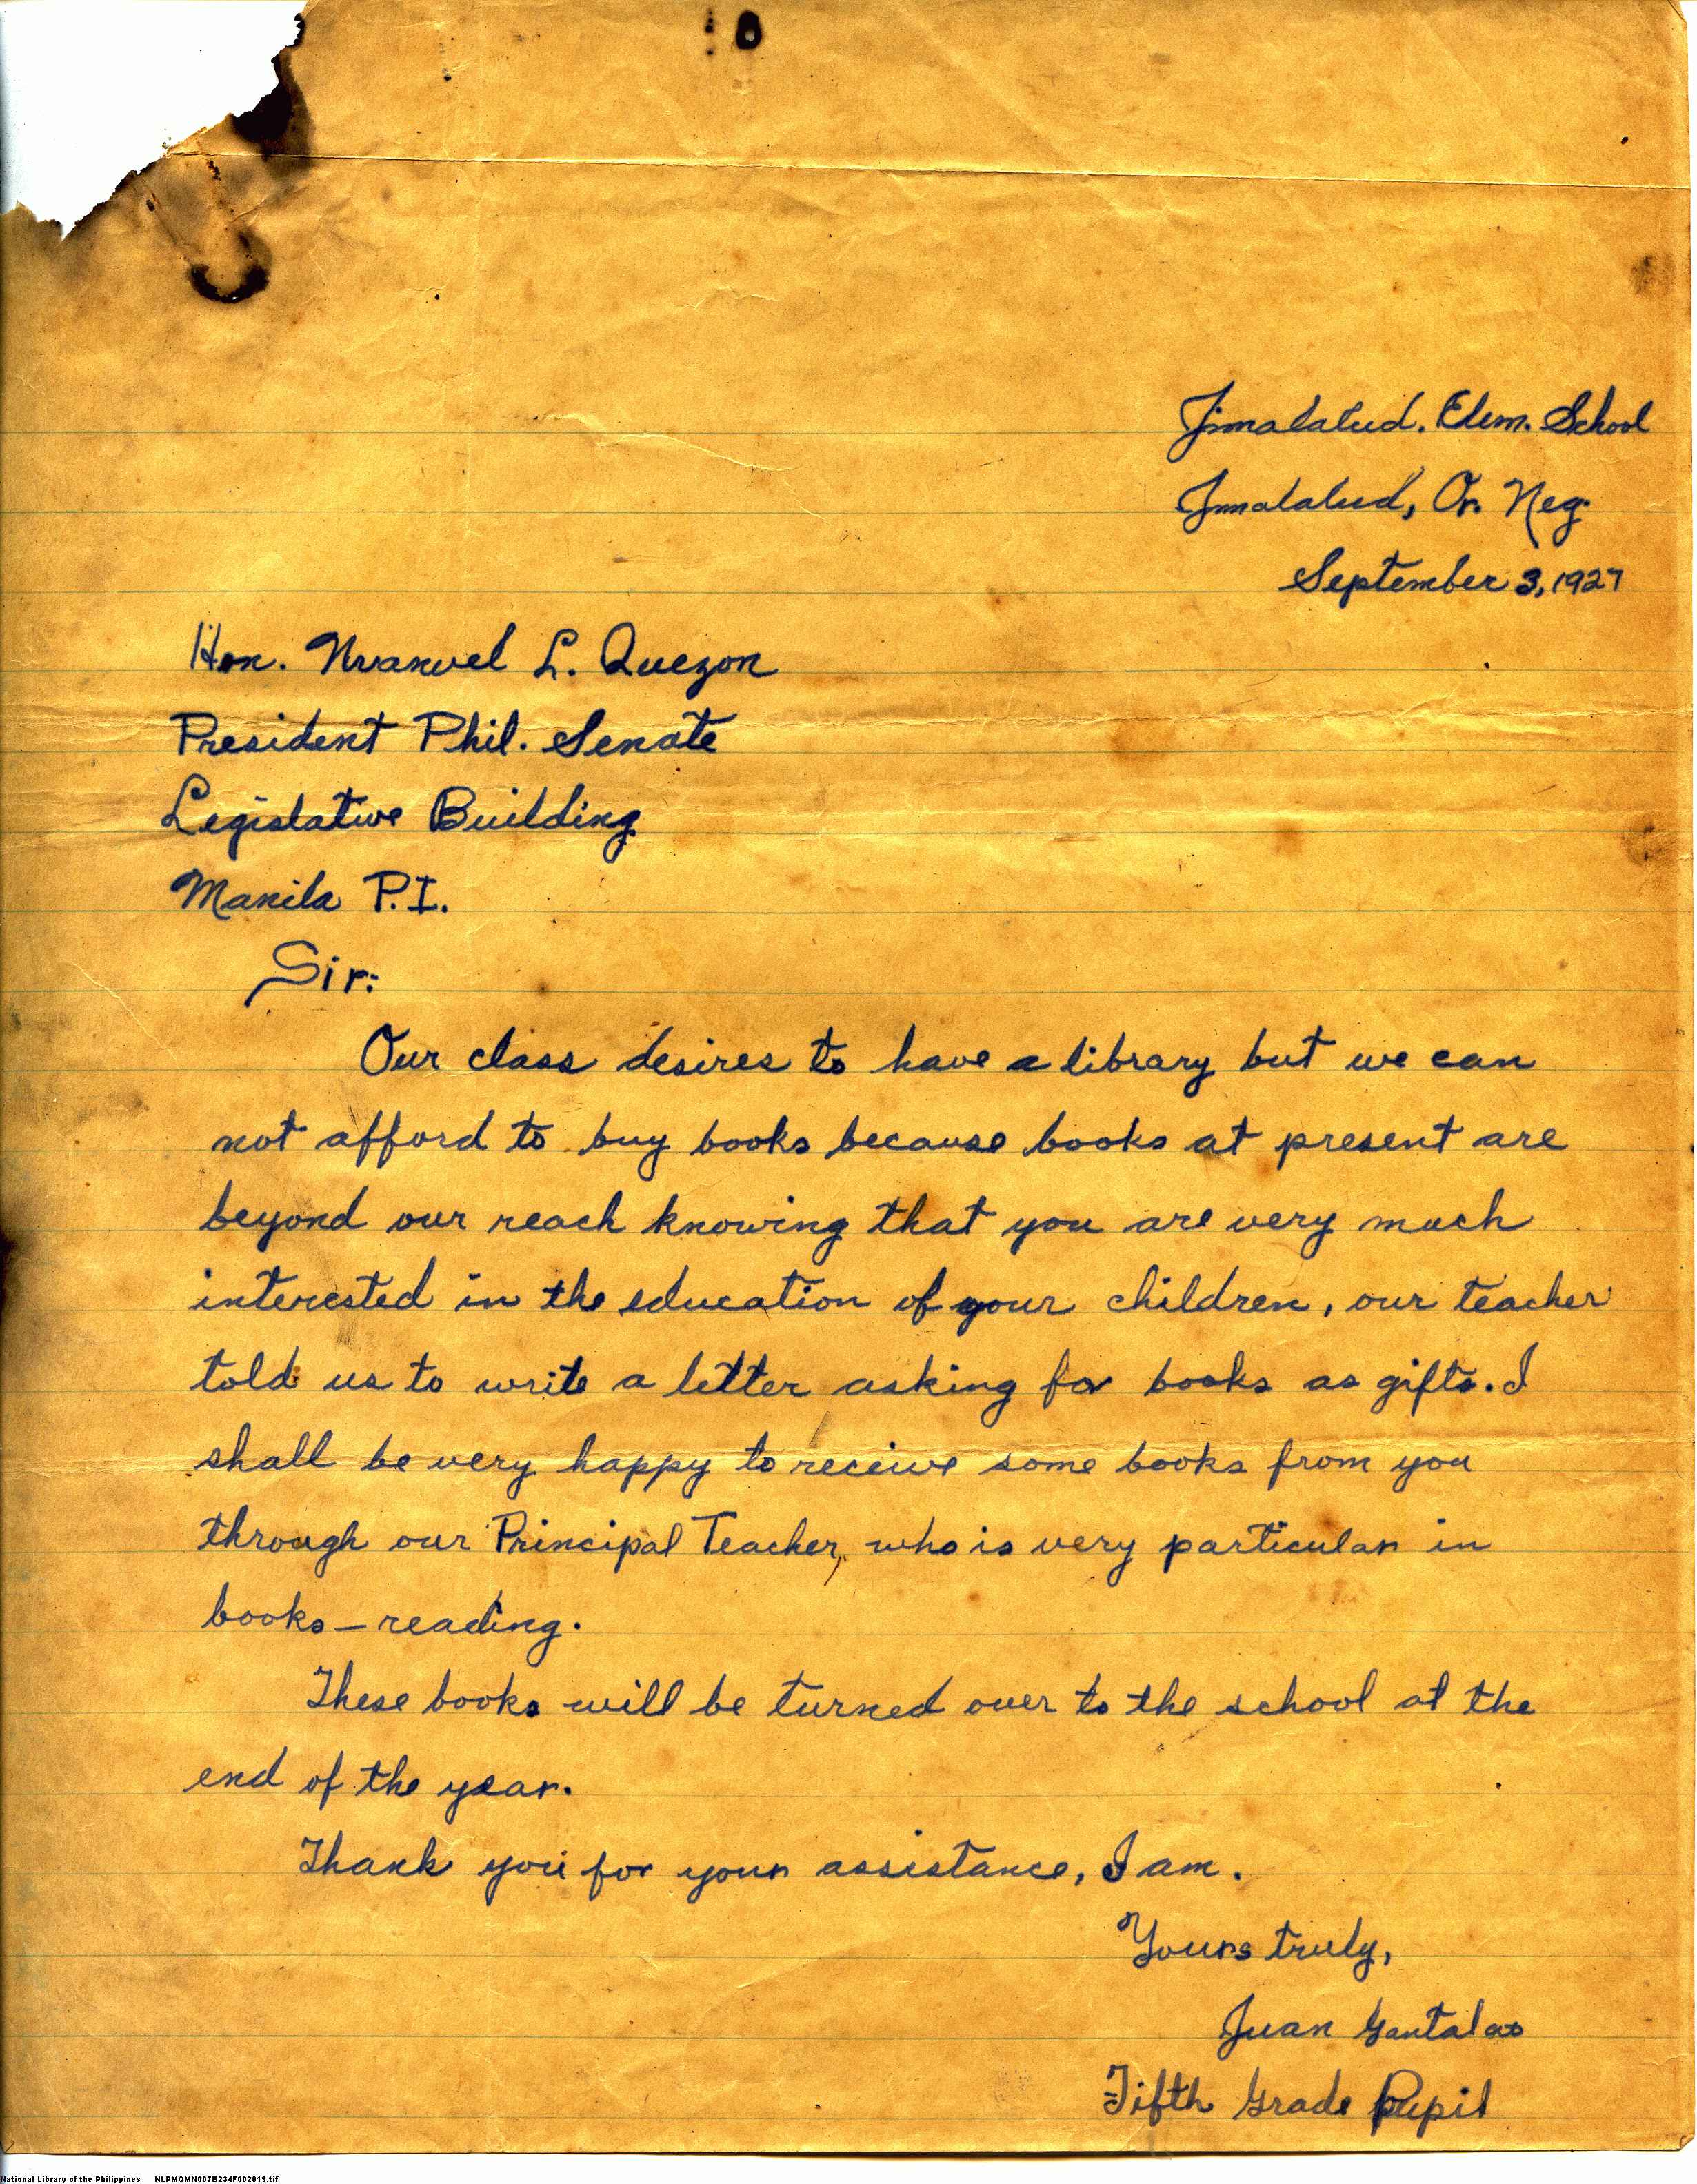 Jimalalud. Elem. School
Jimalalud, Or. Neg.
September 3, 1927
Hon. Manuel L. Quezon
President Phil. Senate
Legislative Building
Manila P.I.
Sir:
Our class desires to have a library but we can
not afford to buy books because books at present are
beyond our reach knowing that you are very much
interested in the education of your children, our teacher
told us to write a letter asking for books as gifts. I
shall be very happy to receive some books from you
through our Principal Teacher, who is very particular in
books-reading.
These books will be turned over to the school at the
end of the year.
Thank you for your assistance, I am.
Yours truly,
Juan
Fifth Grade Pupil
National Library of the Philippines NLPMQMN007B234F002019.tif